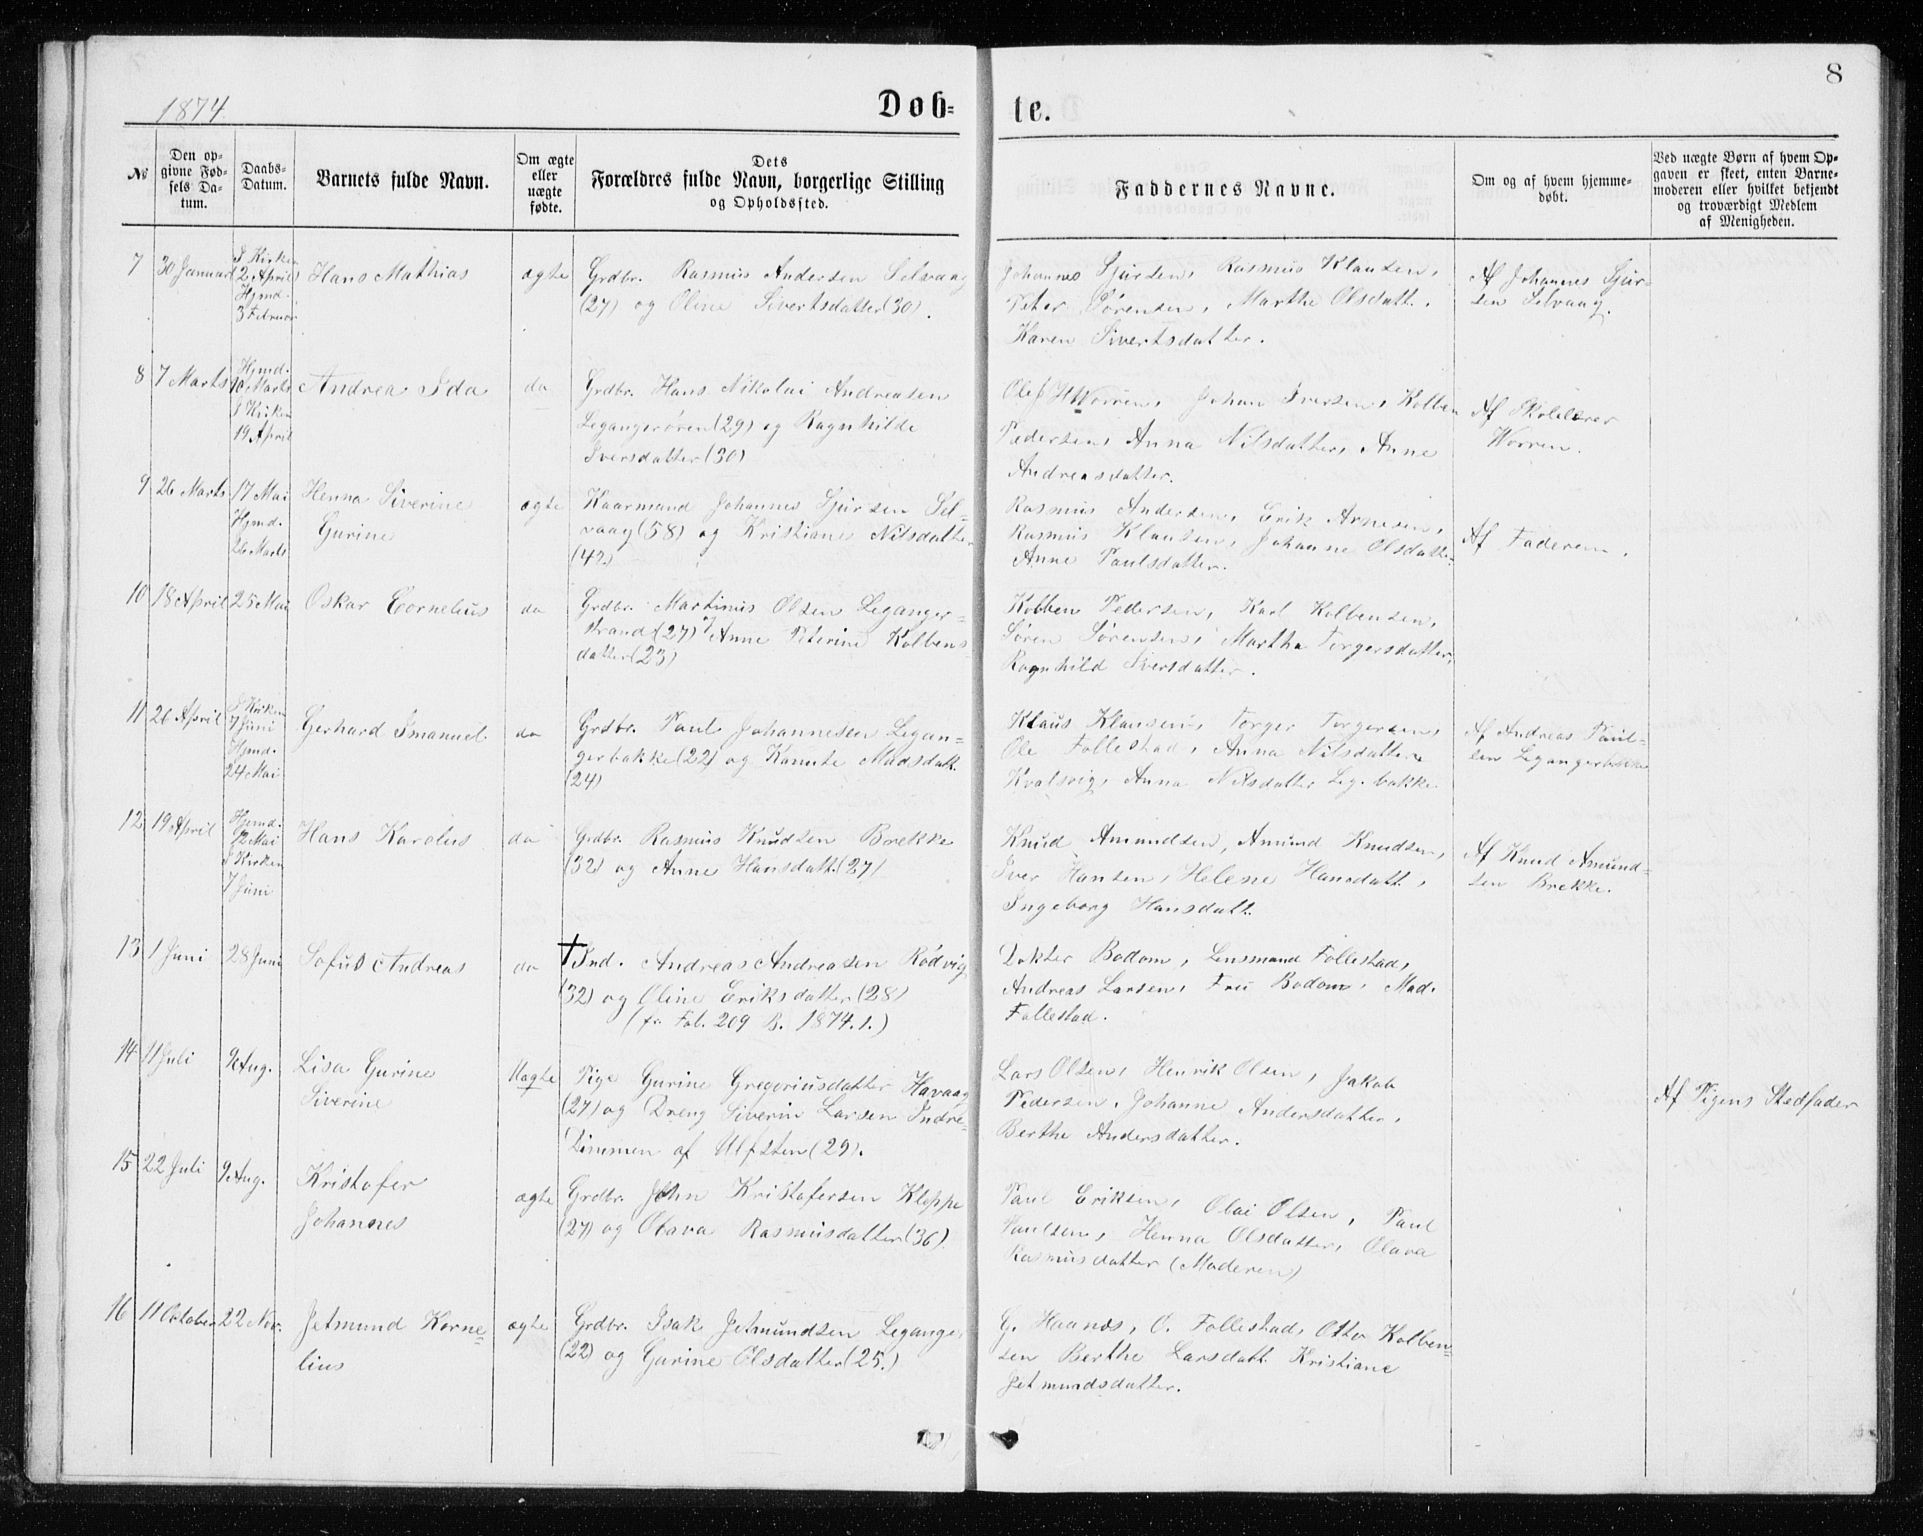 8
1874
Døb-
te.
№
Den op-
givne Fød-
sels Da-
tum.
Daabs-
Datum.
Barnets fulde Navn.
Om ægte
eller
uægte
fødte.
Dets
Forældres fulde Navn, borgerlige Stilling
og Opholdssted.
Faddernes Navne.
Om og af hvem hjemme-
døbt.
Ved uægte Børn af hvem Op-
gaven er skeet, enten Barne-
moderen eller hvilket bekjendt
og troværdigt Medlem
af Menigheden.
7
30 Januar
I Kirken
2 April
Hjmd.
3 Februar
Hans Mathias
ægte
Grdbr. Rasmus Andersen Selvaag
(27) og Oline Sivertsdatter (30).
Johannes Sjursen, Rasmus Klausen,
Peter Sørensen, Marthe Olsdatt.
Karen Sivertsdatter.
Af Johannes Sjur-
sen Selvaag.
8
7 Marts
Hjmd.
10 Marts
I Kirken
19 April
Andrea Ida
do
Grdbr. Hans Nikolai Andreasen
Legangerøren (29) og Ragnhilde
Iversdatter (30)
Olef Worren, Johan Iversen, Kolben
Pedersen, Anna Nilsdatter, Anne
Andreasdatter.
Af Skolelærer
Worren.
9
26 Marts
17 Mai
Hjmd.
26 Marts
Henna Siverine
Gurine
ægte
Kaarmand Johannes Sjursen Sel-
vaag (58) og Kristiane Nilsdatter
(42)
Rasmus Andersen, Erik Arnesen,
Rasmus Klausen, Johanne Olsdatter
Anne Paulsdatter.
Af Faderen.
10
18 April
25 Mai
Oskar Cornelius
do
Grdbr. Martinus Olsen Leganger-
strand (27) & Anne Peterine Kolbens
datter (23)
Kobben Pedersen, Karl Kolbensen,
Søren Sørensen, Martha Torgersdatter,
Ragnhild Iversdatter.
11
26 April
I Kirken
7 Juni
Hjmd.
24 Mai
Gerhard Imanuel
do
Grdbr. Paul Johannesen Legan-
gerbakke (22) og Kanute Madsdatt.
(24)
Klaus Klausen, Torger Torgersen,
Ole Follestad, Anna Nilsdatter
Kvalsvig, Anna Nilsdatter Leg.bakke
Af Andreas Paul-
sen Legangerbakke
12
19 April
Hjemd.
12 Mai
I Kirken
7 Juni
Hans Karolus
do
Grdbr. Rasmus Knudsen Brekke
(32) og Anne Hansdatt. (27)
Knud Amundsen, Amund Knudsen,
Iver Hansen, Helene Hansdatt.,
Ingeborg Hansdatt.
Af Knud Amund-
sen Brekke.
13
1 Juni
28 Juni
Sofus Andreas
do
† Ind. Andreas Andreasen Rødvig
(32) og Oline Eriksdatter (28)
(fr. Fol. 209 B. 1874.1.)
Dokter Bodom, Lensmand Follestad,
Andreas Larsen, Fru Bodom, Mad.
Follestad.
14
11 Juli
9 Aug.
Lisa Gurine
Siverine
Uægte
Pige Gurine Gregoriusdatter Havaag
(27) og Dreng Siverin Larsen Indre-
Dimmen af Ulfsten (29).
Lars Olsen, Henrik Olsen, Jakob
Pedersen, Johanne Andersdatter,
Berthe Andersdatter.
Af Pigens Stedfader
15
22 Juli
9 Aug.
Kristofer
Johannes
ægte
Grdbr. John Kristofersen Kleppe
(27) og Olava Rasmusdatter (36)
Paul Eriksen, Olai Olsen, Paul
Paulsen, Henna Olsdatter, Olava
Rasmusdatter (Moderen)
16
11 October
22 Nov.
Jetmund Korne-
lius
ægte
Grdbr. Isak Jetmundsen Leganger
(22) og Gurine Olsdatter (25.)
G. Haanes, O. Follestad, Otto Kolben-
sen Berthe Larsdatt. Kristiane
Jetmundsdatter.